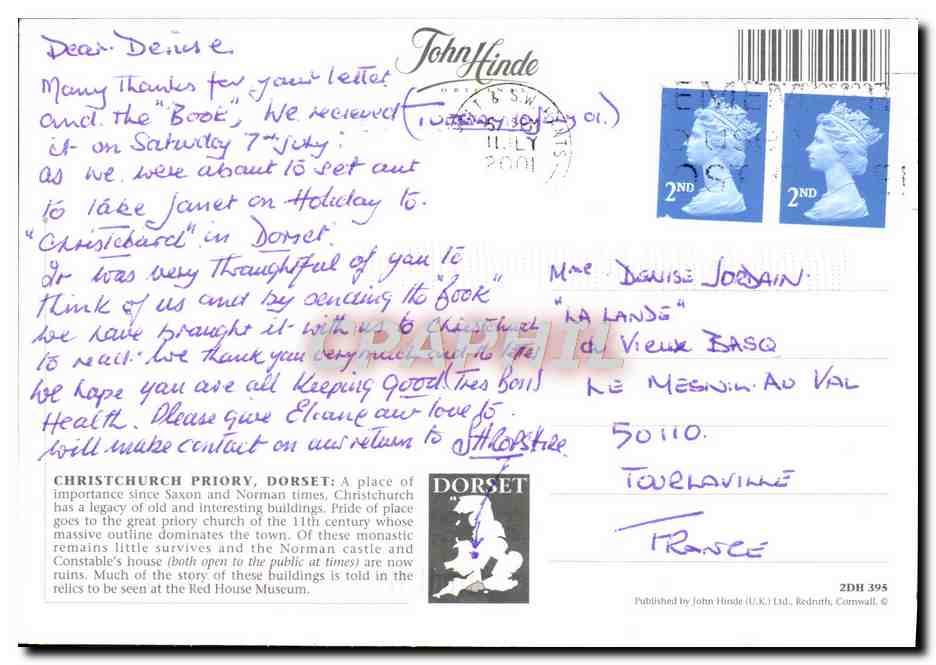 Dear Denise
Many Thanks for your letter
and the "Book", We recieved (Tuesday 10 July 01.)
it on Saturday 7th July.
as we were about to set out
to take Janet on Holiday to.
"Christchurch" in Dorset.
It was very thoughtful of you to
think of us and by sending the "Book"
we have brought it with us to Christchurch
to read. We thank you very much and the letter
we hope you are all keeping good (Tres Bon)
Health. Please give Eliane our love to.
will make contact on our return to Shropshire
John Hinde
ORIGINAL
& S.W.
11 JLY
2001
2ND
2ND
Mme Denise Jordain.
"La Lande"
du Vieux Basq
Le Mesnil. Au Val
50110.
Tourlaville
France
CPAPHIL
CHRISTCHURCH PRIORY, DORSET: A place of
importance since Saxon and Norman times, Christchurch
has a legacy of old and interesting buildings. Pride of place
goes to the great priory church of the 11th century whose
massive outline dominates the town. Of these monastic
remains little survives and the Norman castle and
Constable's house (both open to the public at times) are now
ruins. Much of the story of these buildings is told in the
relics to be seen at the Red House Museum.
DORSET
2DH 395
Published by John Hinde (U.K.) Ltd., Redruth, Cornwall. ©